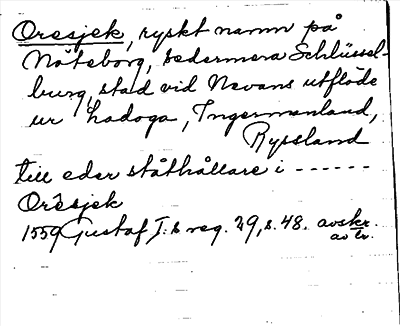 Oresjek, ryskt namn på
Nöteborg, sedermera Schlüssel-
burg, stad vid Nevans utflöde
ur Ladoga, Ingermanland,
Ryssland
till eder ståthållare i ------
Orèsjek
1559 Gustaf I:s reg. 29, s. 48. avskr.
av tr.